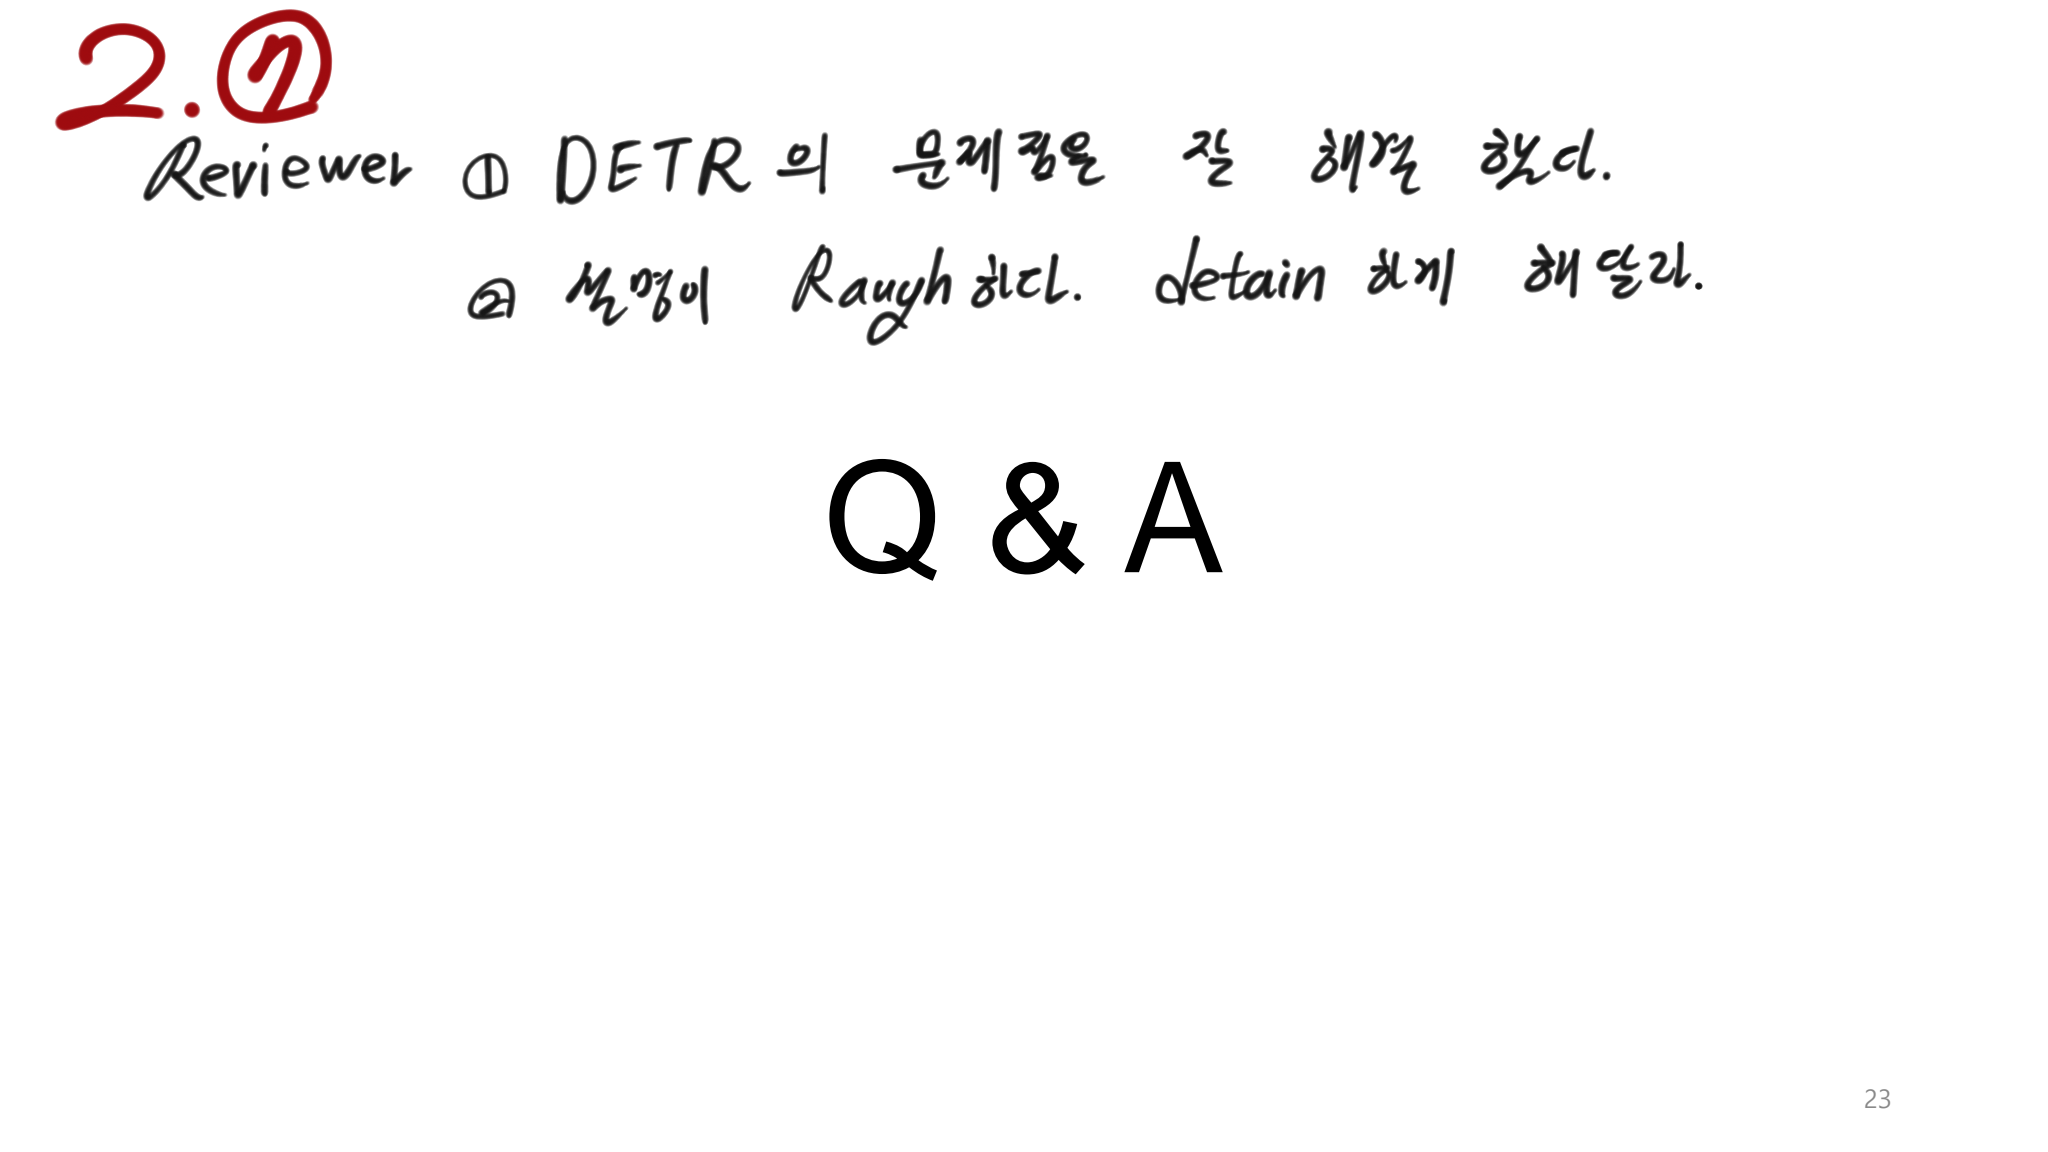 2.⑦
Reviewer ① DETR의 문제점을 잘 해결 했다.
② 설명이 Raugh하다. detain 하게 해달라.
Q & A
23